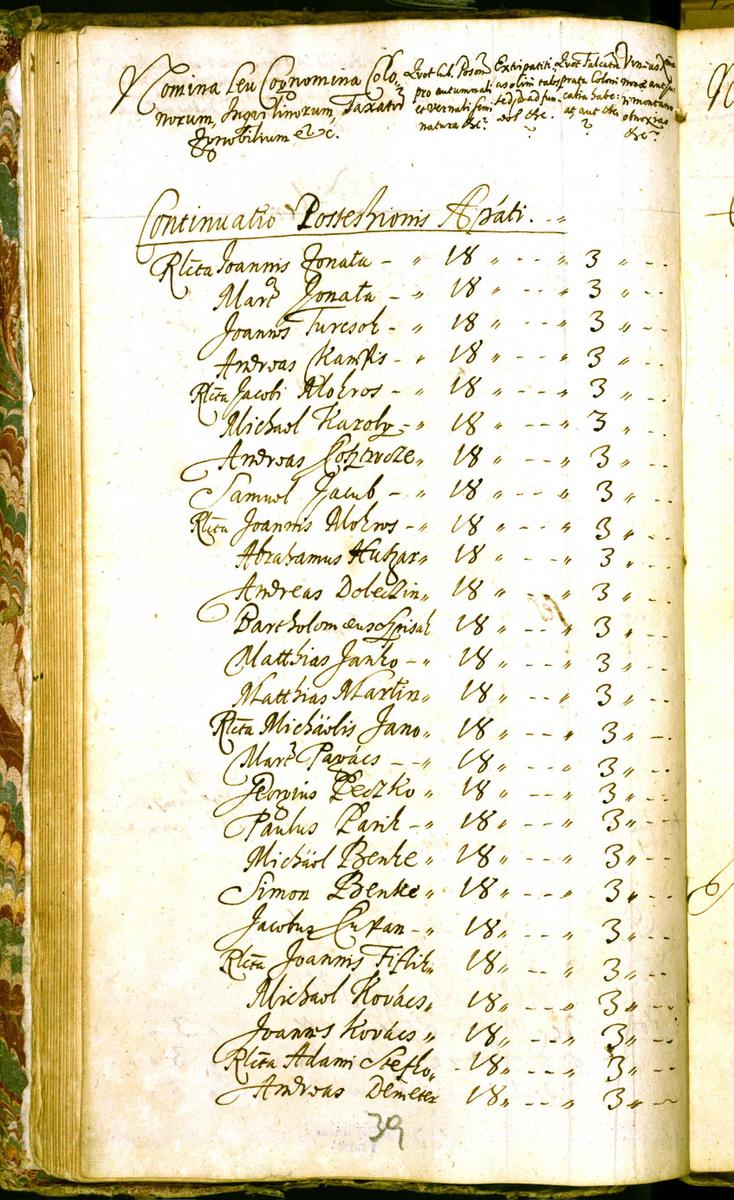 Nomina seu Cognomina Colo,
norum, Inquilinorum, Taxatorum
Ignobilium etc.
Quot lub. Poson
pro autumnali
et vernali semi
natura &c.
Extirpatiti
us olim talis
sed ad fun
&c.
Quot Falcatu
prata Coloni
catia habe:
at, aut
Vineas
novae aut
montano
obnoxias
&c.
Continuatio Possessionis Apáti. - „
Rlcta Joannis Jonata - „ 18 „ - - „ 3 „ - -
Mart. Jonata - „ 18 „ - - „ 3 „ - -
Joannes Turcsok - „ 18 „ - - „ 3 „ - -
Andreas - „ 18 „ - - „ 3 „ - -
Rlcta Jacobi Mokros - „ 18 „ - - „ 3 „ - -
Michael Karoly - „ 18 „ - - „ 3 „ - -
Andreas „ 18 „ - - „ 3 „ - -
Samuel Jacub - „ 18 „ - - „ 3 „ - -
Rlcta Joannis Mokros - „ 18 „ - - „ 3 „ - -
Abrahamus Huszar „ 18 „ - - „ 3 „ - -
Andreas Doleczin „ 18 „ - - „ 3 „ - -
Bartholomaeus Spisak 18 „ - - „ 3 „ - -
Matthias Janko - „ 18 „ - - „ 3 „ - -
Matthias Martin „ 18 „ - - „ 3 „ - -
Rlcta Michäelis Jano „ 18 „ - - „ 3 „ - -
Mart. Pavács - - „ 18 „ - - „ 3 „ - -
Georgius Peczko „ 18 „ - - „ 3 „ - -
Paulus Parik - „ 18 „ - - „ 3 „ - -
Michäel Benke „ 18 „ - - „ 3 „ - -
Simon Benke „ 18 „ - - „ 3 „ - -
Jacobus - „ 18 „ - - „ 3 „ - -
Rlcta Joannis Fiflik „ 18 „ - - „ 3 „ - -
Michael Kovács „ 18 „ - - „ 3 „ - -
Joannes Kovács „ 18 „ - - „ 3 „ - -
Rlcta Adami Stefko „ - 18 „ - - „ 3 „ - -
Andreas Demeter 18 „ - - „ 3 „ - -
39